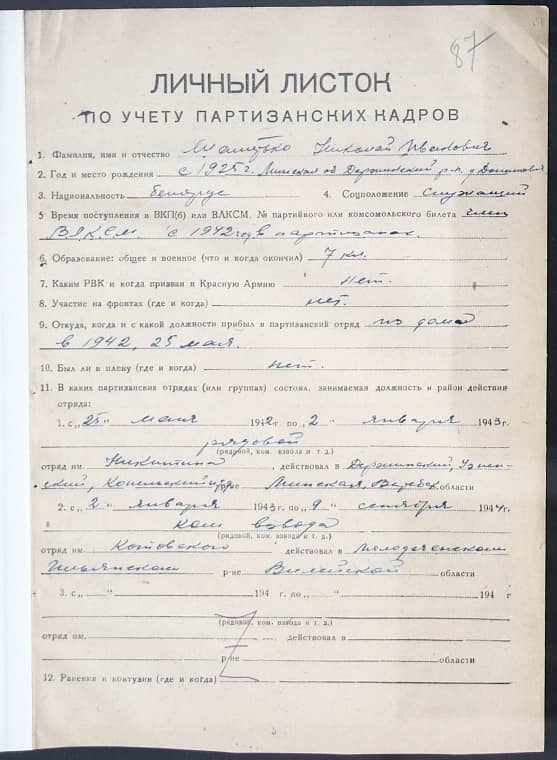 87
ЛИЧНЫЙ ЛИСТОК
ПО УЧЕТУ ПАРТИЗАНСКИХ КАДРОВ
1. Фамилия, имя и отчество Николай Иванович
2. Год и место рождения с 1925 г. Минская об Держинский р-н, д
3. Национальность белорус 4. Соцположение Служащий
5 Время поступления в ВКП(б) или ВЛКСМ, № партийного или комсомольского билета член
ВЛКСМ с 1942 года в партизанах.
6. Образование: общее и военное (что и когда окончил) 7 кл.
7. Каким РВК и когда призван в Красную Армию нет.
8. Участие на фронтах (где и когда) нет.
9. Откуда, когда и с какой должности прибыл в партизанский отряд из дома
в 1942, 25 мая.
10. Был ли в плену (где и когда) нет.
11. В каких партизанских отрядах (или группах) состоял, занимаемая должность и район действия
отряда:
1. с „25" мая 1942 г по „2 " января 1943 г.
рядовой
(рядовой, ком. взвода и т. д.)
отряд им Никитина , действовал в Держинский, Узден-
ский, Копыльский р-не Минская, области
2. с „2 " января 1943 г. по „9 " сентября 1944 г.
ком взвода
(рядовой, ком. взвода и т. д.)
отряд им. Котовского действовал в Молодеченском
Ильянском р-не Вилейской области
3. с „ " 194 г. по „ " 194 г
(рядовой, ком. взвода и т. д.)
отряд им. , действовал в
р-не области
12. Ранения и контузии (где и когда)